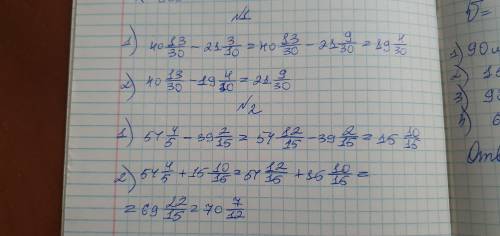 №1
1) 40 13/30 - 21 3/10 = 40 13/30 - 21 9/30 = 19 4/30
2) 40 13/30 - 19 4/30 = 21 9/30
№2
1) 54 4/5 - 39 2/15 = 54 12/15 - 39 2/15 = 15 10/15
2) 54 4/5 + 15 10/15 = 54 12/15 + 15 10/15 =
= 69 22/15 = 70 7/12
1) 90
2)
3)
4)
Отв